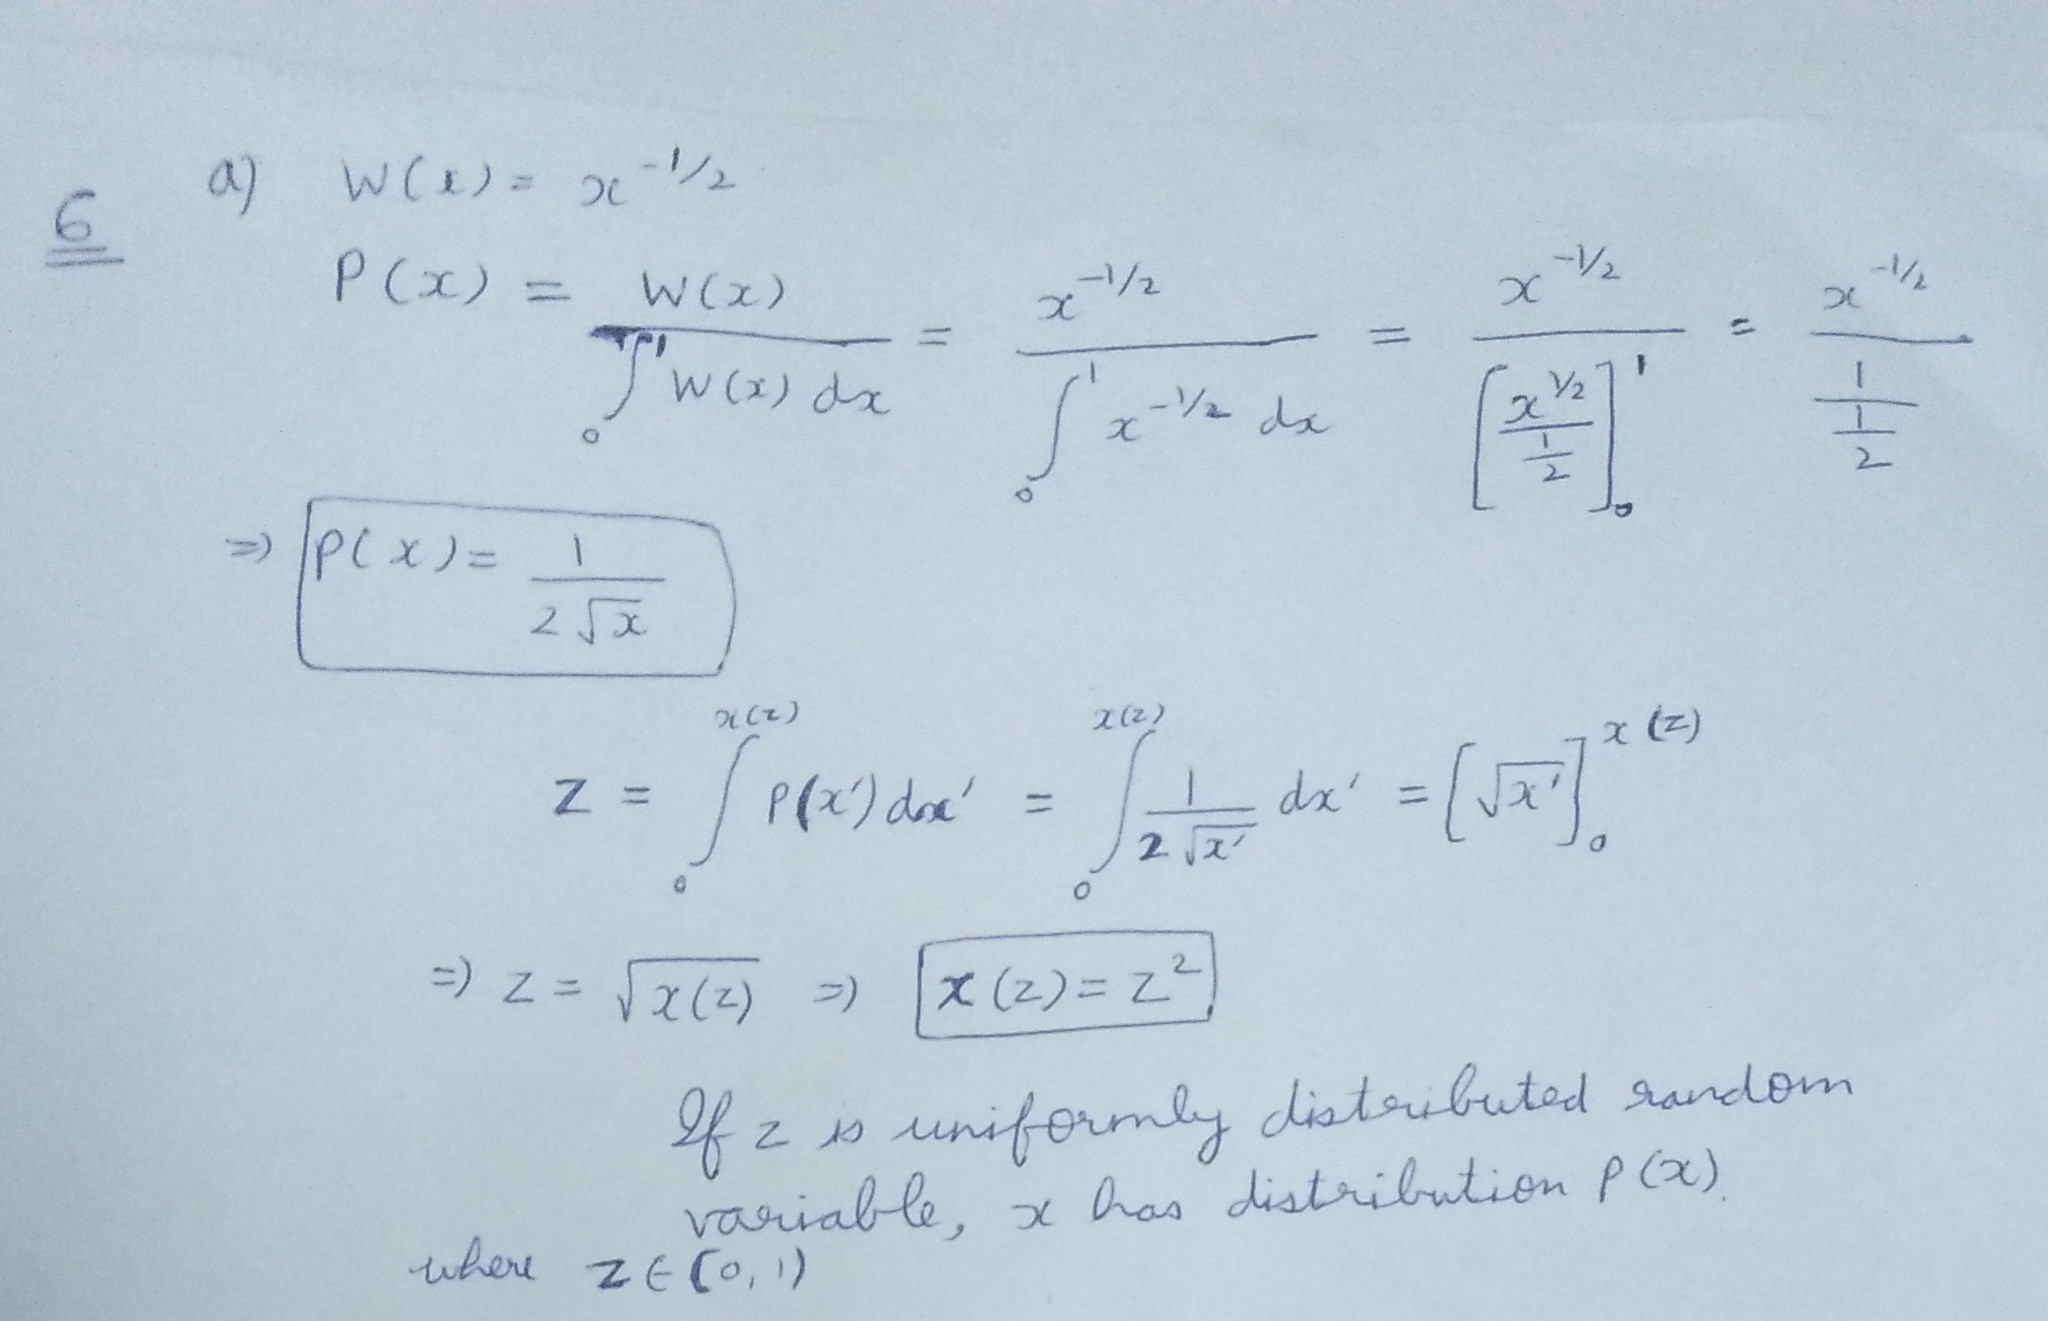 6 a) W(x) = x^{-1/2}
P(x) = \frac{W(x)}{\int_0^1 W(x) dx} = \frac{x^{-1/2}}{\int_0^1 x^{-1/2} dx} = \frac{x^{-1/2}}{\left[\frac{x^{1/2}}{\frac{1}{2}}\right]_0^1} = \frac{x^{-1/2}}{\frac{1}{\frac{1}{2}}}
⇒ P(x) = \frac{1}{2\sqrt{x}}
z = \int_0^{x(z)} P(x') dx' = \int_0^{x(z)} \frac{1}{2\sqrt{x'}} dx' = [\sqrt{x'}]_0^{x(z)}
⇒ z = \sqrt{x(z)} ⇒ x(z) = z^2
If z is uniformly distributed random
variable, x has distribution P(x).
where z ∈ [0, 1)